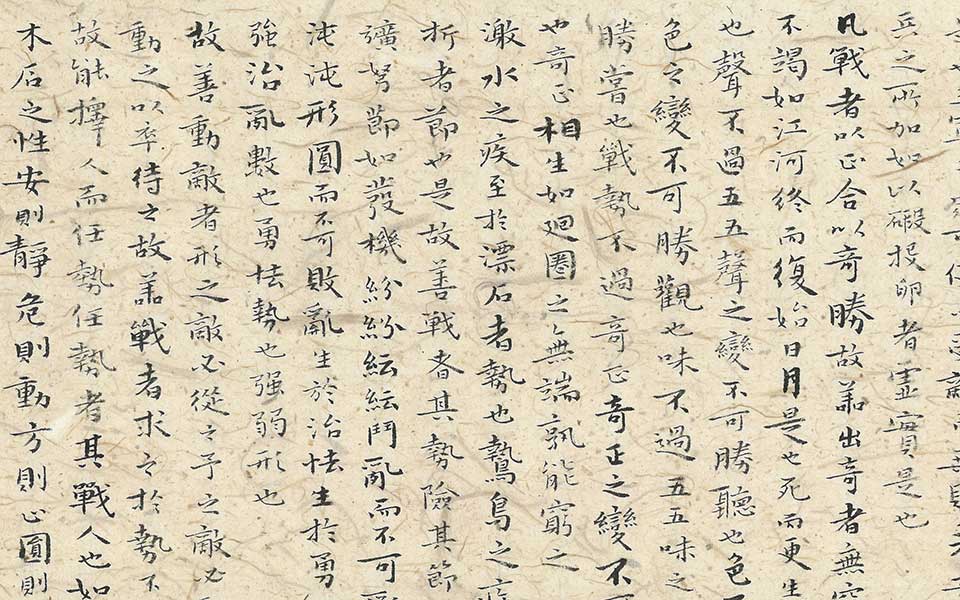 兵之所加如以碬投卵者虛實是也
凡戰者以正合以奇勝故善出奇者無窮
不竭如江河終而復始日月是也死而更生
也聲不過五五聲之變不可勝聽也色不
色之變不可勝觀也味不過五五味之
勝嘗也戰勢不過奇正奇正之變不可
也奇正相生如廻圈之無端孰能窮之
激水之疾至於漂石者勢也鷙鳥之疾
折者節也是故善戰者其勢險其節
彍弩節如發機紛紛紜紜鬥亂而不可亂
沌沌形圓而不可敗亂生於治怯生於勇
強治亂數也勇怯勢也强弱形也
故善動敵者形之敵必從之予之敵必
動之以卒待之故善戰者求之於勢不
故能擇人而任勢任勢者其戰人也如
木石之性安則靜危則動方則止圓則